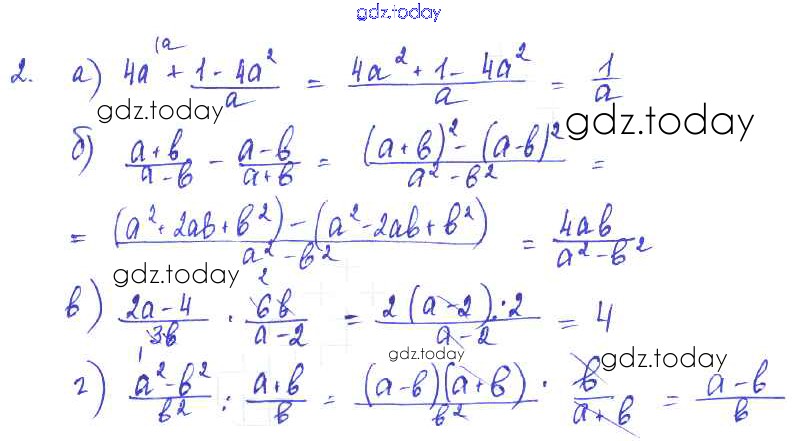 gdz.today
2. а) 4a^{(a} + (1 - 4a²)/a = (4a² + 1 - 4a²)/a = 1/a
gdz.today gdz.today
б) (a+b)/(a-b) - (a-b)/(a+b) = ((a+b)² - (a-b)²)/(a² - b²) =
= ((a² + 2ab + b²) - (a² - 2ab + b²))/(a² - b²) = 4ab/(a² - b²)
gdz.today
в) (2a - 4)/(3b) · (6b)/(a - 2) = (2(a - 2) · 2)/(a - 2) = 4
gdz.today gdz.today
г) (a² - b²)/b² : (a+b)/b = ((a - b)(a + b))/b² · b/(a + b) = (a - b)/b